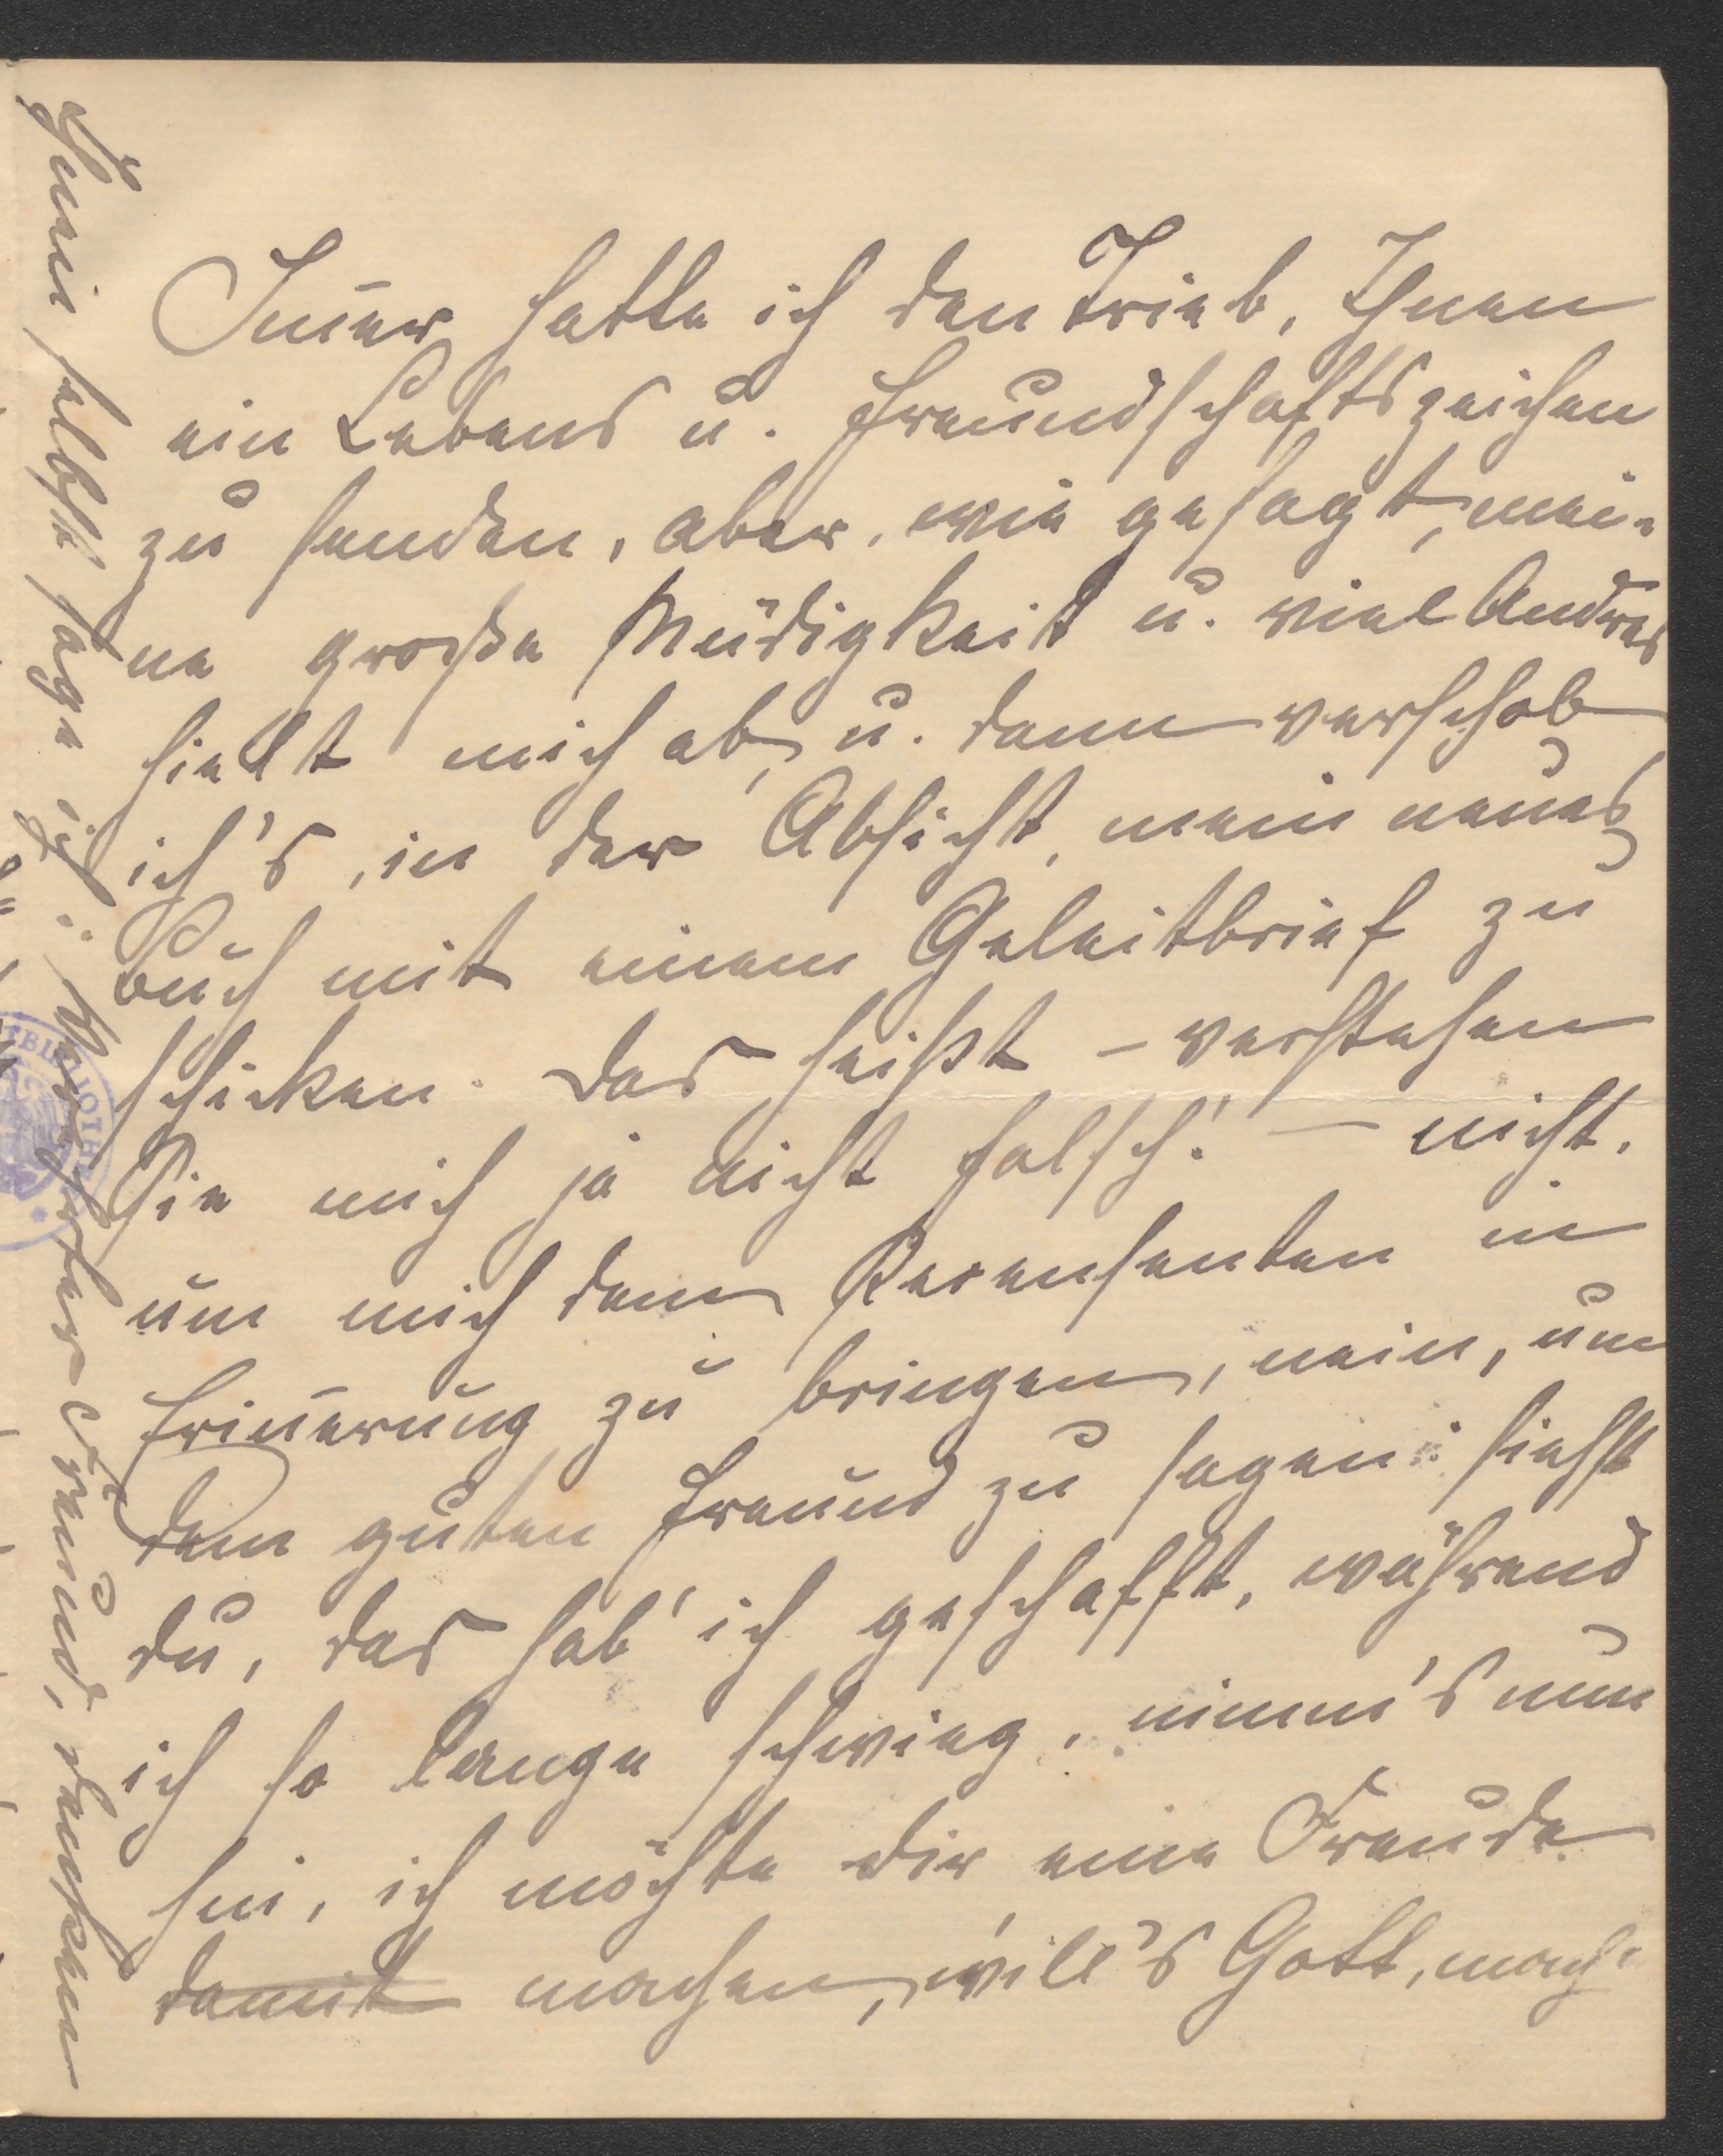 Im̄er hatte ich den Trieb, Ihnen
ein Lebens u. Freundschaftszeichen
zu senden, aber, wie gesagt, mei-
ne große Müdigkeit u. viel Andres
hielt mich ab, u. dann verschob
ich's, in der Absicht, mein neues
Buch mit einem Geleitbrief zu
schicken. Das heißt – verstehen
Sie mich ja nicht falsch! – nicht,
um mich dem Recensenten in
Erin̄erung zu bringen, nein, um
dem guten Freund zu sagen: siehst
du, das hab' ich geschafft, während
ich so lange schwieg, nimm's nun
hin, ich möchte dir eine Freude
damit machen, will's Gott, mach'
Ihnen selbst sage ich: Verehrter Freund, danken
BIBLIOTH